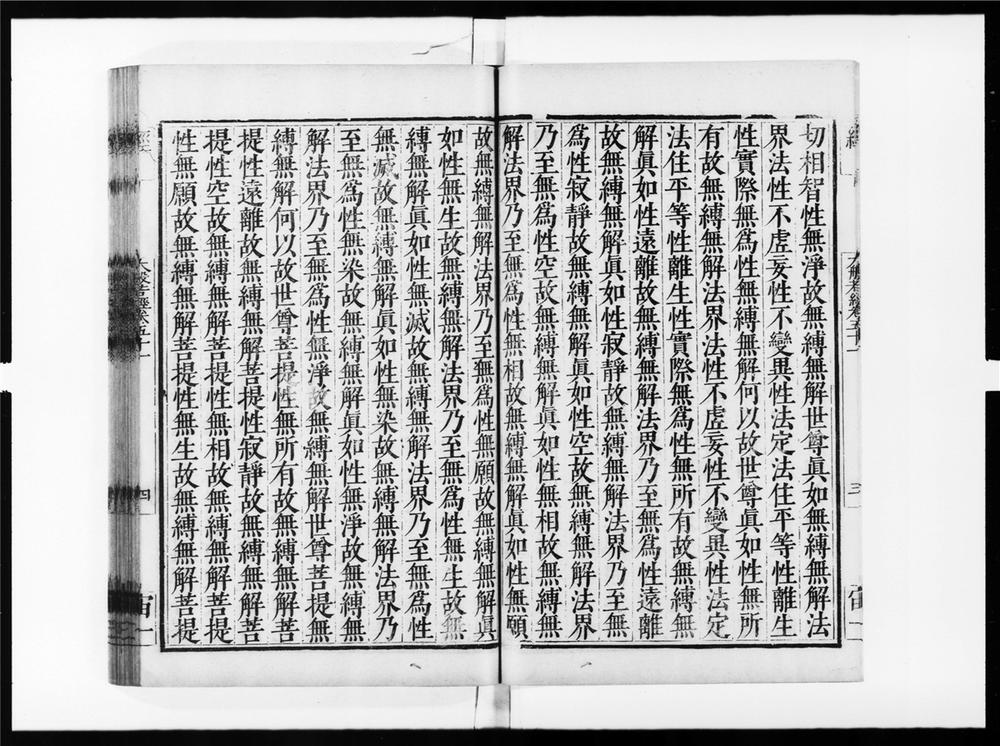 切相智性無淨故無縛無解世尊眞如無縛無解法
界法性不虛妄性不變異性法定法住平等性離生
性實際無爲性無縛無解何以故世尊眞如性無所
有故無縛無解法界法性不虛妄性不變異性法定
法住平等性離生性實際無爲性無所有故無縛無
解眞如性遠離故無縛無解法界乃至無爲性遠離
故無縛無解眞如性寂靜故無縛無解法界乃至無
爲性寂靜故無縛無解眞如性空故無縛無解法界
乃至無爲性空故無縛無解眞如性無相故無縛無
解法界乃至無爲性無相故無縛無解眞如性無願
故無縛無解法界乃至無爲性無願故無縛無解眞
如性無生故無縛無解法界乃至無爲性無生故無
縛無解眞如性無滅故無縛無解法界乃至無爲性
無滅故無縛無解眞如性無染故無縛無解法界乃
至無爲性無染故無縛無解眞如性無淨故無縛無
解法界乃至無爲性無淨故無縛無解世尊菩提無
縛無解何以故世尊菩提性無所有故無縛無解菩
提性遠離故無縛無解菩提性寂靜故無縛無解菩
提性空故無縛無解菩提性無相故無縛無解菩提
性無願故無縛無解菩提性無生故無縛無解菩提